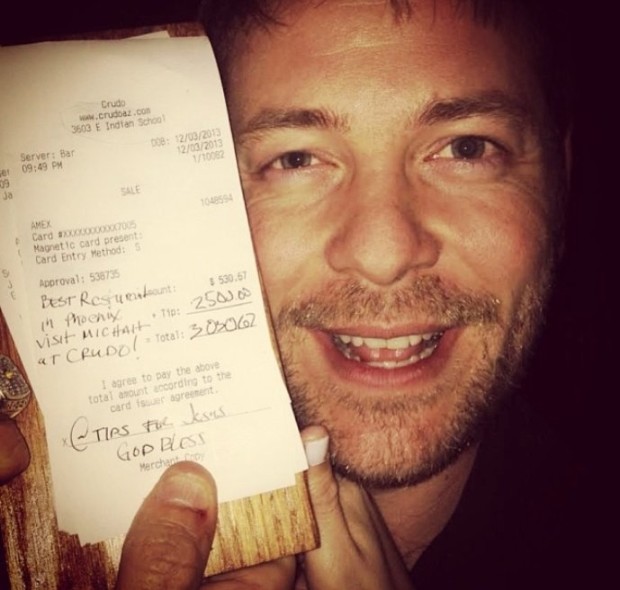 Crudo
www.crudoaz.com
3603 E Indian School
DOB: 12/03/2013
Server: Bar 12/03/2013
09:49 PM 1/10082
SALE
1048594
AMEX
Card #XXXXXXXXXXX7005
Magnetic card present:
Card Entry Method: S
Approval: 538735
BEST Restaurant Amount: $ 530.67
IN PHOENIX + Tip: 2500.00
VISIT MICHAH = Total: 3030.67
AT CRUDO!
I agree to pay the above
total amount according to the
card issuer agreement.
x @TIPS FOR Jesus
GOD BLESS
Merchant Copy